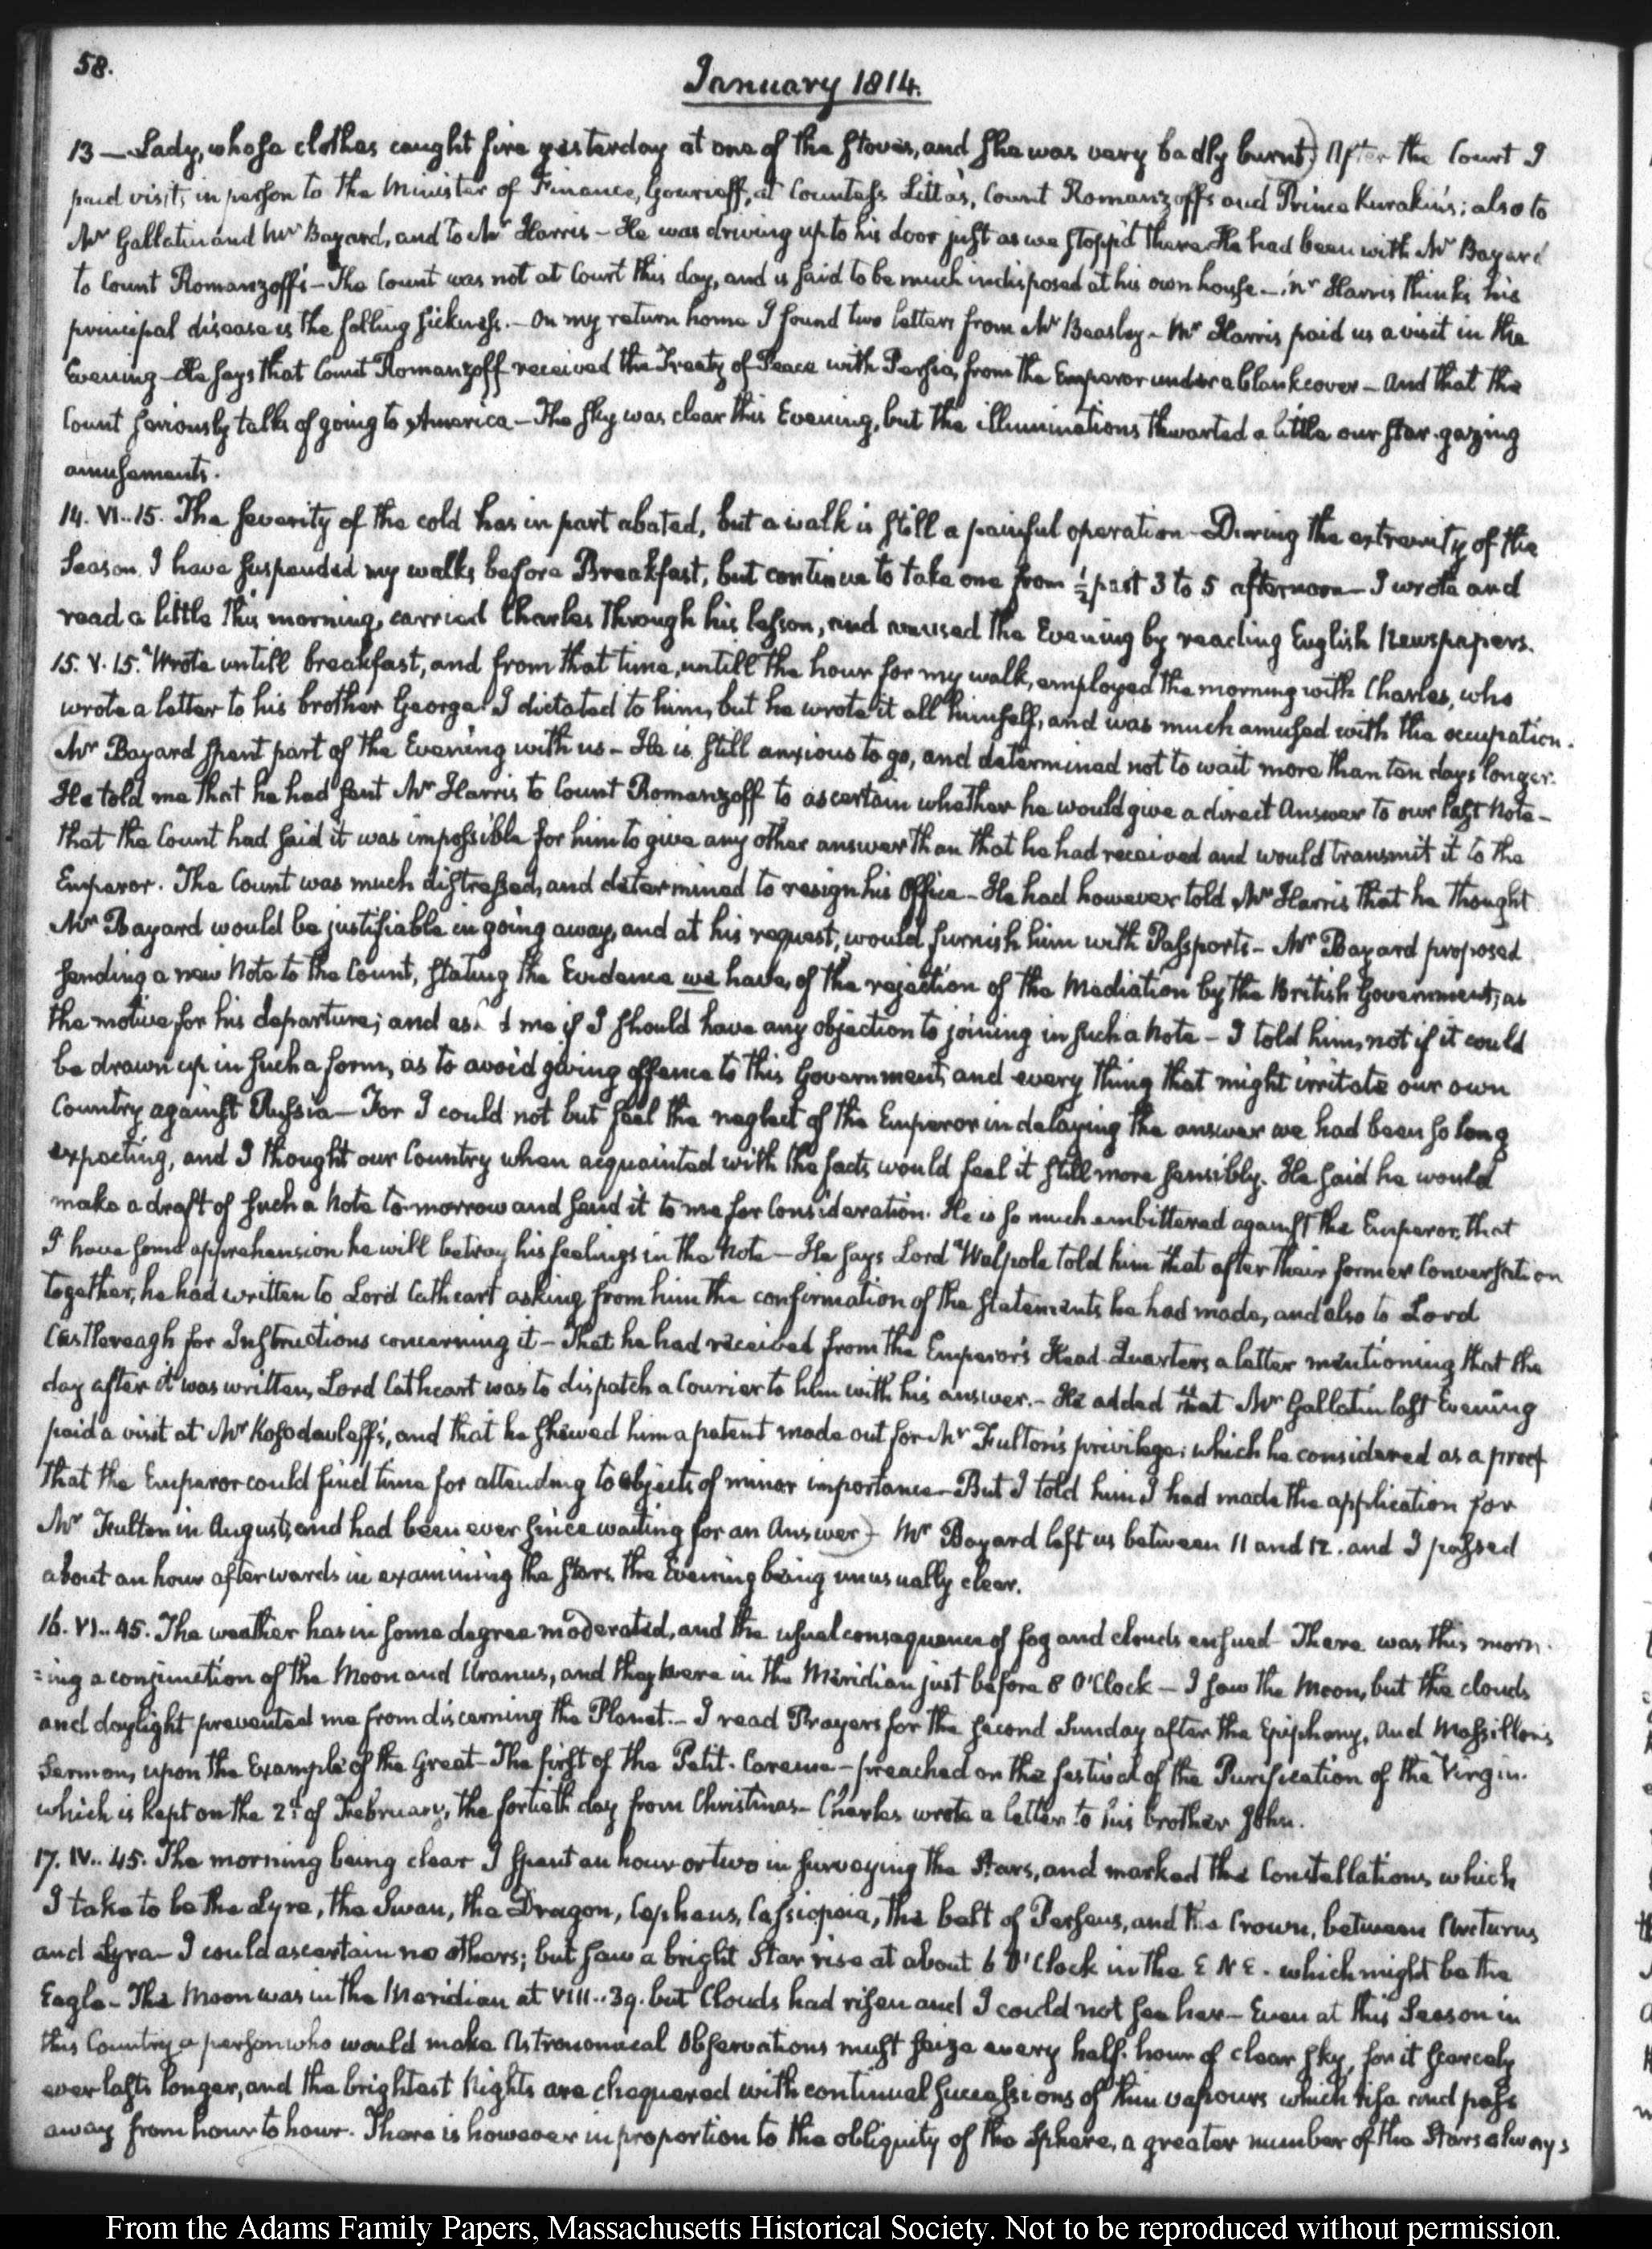 58.
January 1814.
13 — Lady, whose clothes caught fire yesterday at one of the stoves, and she was very badly burnt) After the Court I
paid visits in person to the Minister of Finance, Gourieff, at Countess Litta's, Count Romanzoff's and Prince Kurakin's; also to
Mr Gallatin and Mr Bayard, and to Mr Harris – He was driving up to his door just as we stopp'd there. He had been with Mr Bayard
to Count Romanzoff's – The Count was not at Court this day, and is said to be much indisposed at his own house – Mr Harris thinks his
principal disease is the falling sickness. – On my return home I found two letters from Mr Beasley – Mr Harris paid us a visit in the
Evening – He says that Count Romanzoff received the Treaty of Peace with Persia, from the Emperor under a blank cover – and that the
Count seriously talks of going to America – The sky was clear this Evening, but the illuminations thwarted a little our star-gazing
amusements.
14. VI..15. The severity of the cold has in part abated, but a walk is still a painful operation – During the extremity of the
Season I have suspended my walks before Breakfast, but continue to take one from ½ past 3 to 5 afternoon – I wrote and
read a little this morning, carried Charles through his lesson, and amused the Evening by reading English Newspapers.
15. V. 15. Wrote untill breakfast, and from that time, untill the hour for my walk, employed the morning with Charles, who
wrote a letter to his brother George. I dictated to him, but he wrote it all himself, and was much amused with the occupation.
Mr Bayard spent part of the Evening with us – He is still anxious to go, and determined not to wait more than ten days longer.
He told me that he had sent Mr Harris to Count Romanzoff to ascertain whether he would give a direct Answer to our last Note –
that the Count had said it was impossible for him to give any other answer than that he had received and would transmit it to the
Emperor. The Count was much distressed, and determined to resign his Office – He had however told Mr Harris that he thought
Mr Bayard would be justifiable in going away, and at his request, would furnish him with Passports – Mr Bayard proposed
sending a new Note to the Count, stating the Evidence we have, of the rejection of the Mediation by the British Government; as
the motive for his departure; and ask'd me if I should have any objection to joining in such a Note – I told him, not if it could
be drawn up in such a form, as to avoid giving offence to this Government, and every thing that might irritate our own
Country against Russia – For I could not but feel the neglect of the Emperor in delaying the answer we had been so long
expecting, and I thought our Country when acquainted with the facts would feel it still more sensibly. He said he would
make a draft of such a Note to-morrow and send it to me for Consideration. He is so much embittered against the Emperor, that
I have some apprehension he will betray his feelings in the Note – He says Lord Walpole told him that after their former Conversation
together, he had written to Lord Cathcart asking from him the confirmation of the statements he had made, and also to Lord
Castlereagh for Instructions concerning it – That he had received from the Emperor's Head-Quarters a letter mentioning that the
day after it was written, Lord Cathcart was to dispatch a Courier to him with his answer. – He added that Mr Gallatin last Evening
paid a visit at Mr Kosodavleff's, and that he shewed him a patent made out for Mr Fulton's privilege: which he considered as a proof
that the Emperor could find time for attending to objects of minor importance – But I told him I had made the application for
Mr Fulton in August, and had been ever since waiting for an Answer) – Mr Bayard left us between 11 and 12. and I passed
about an hour afterwards in examining the stars, the Evening being unusually clear.
16. VI..45. The weather has in some degree moderated, and the usual consequence of fog and clouds ensued – There was this morn-
=ing a conjunction of the Moon and Uranus, and they were in the Meridian just before 8 O'Clock – I saw the Moon, but the clouds
and daylight prevented me from discerning the Planet. – I read Prayers for the second Sunday after the Epiphany, and Massillon's
Sermon, upon the Example of the Great – The first of the Petit-Careme – preached on the festival of the Purification of the Virgin.
which is kept on the 2d of February, the fortieth day from Christmas – Charles wrote a letter to his brother John.
17. IV..45. The morning being clear I spent an hour or two in surveying the Stars, and marked the Constellations, which
I take to be the Lyre, the Swan, the Dragon, Cepheus, Cassiopeia, the belt of Perseus, and the Crown, between Arcturus
and Lyra – I could ascertain no others; but saw a bright Star rise at about 6 O'Clock in the E N E. which might be the
Eagle – The Moon was in the Meridian at VIII..39. but Clouds had risen and I could not see her – Even at this Season in
this Country a person who would make Astronomical Observations must seize every half-hour of clear sky, for it scarcely
ever lasts longer, and the brightest Nights are chequered with continual successions of thin vapours which rise and pass
away from hour to hour. There is however in proportion to the obliquity of the Sphere, a greater number of the Stars always
From the Adams Family Papers, Massachusetts Historical Society. Not to be reproduced without permission.